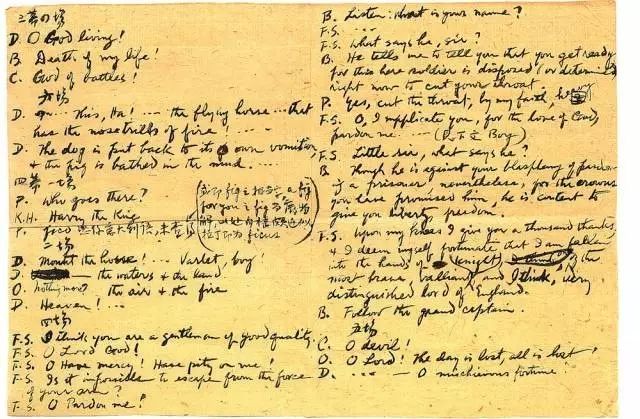 三幕の場
D. O God living!
B. Death of my life!
C. God of battles!
六場
D. This, Ha! ... the flying horse ... that
has the nosetrills of fire! ...
D. The dog is put back to its own vomition
& the pig is bathed in the mud. ...
四幕一場
P. Who goes there?
K.H. Harry the King
P. fico
二場
D. Mount the horse! ... Varlet, boy!
D. the waters & the land.
O. nothing more? the air & the fire
D. Heaven! ...
四場
F.S. I think you are a gentleman of good quality.
F.S. O Lord God!
F.S. O Have mercy! Have pity on me!
F.S. Is it impossible to escape from the force
of your arm?
F.S. O Pardon me!
B. Listen: what is your name?
F.S. ...
F.S. What says he, sir?
B. He tells me to tell you that you get ready
for this here soldier is disposed (or determined)
right now to cut your throat.
P. Yes, cut the throat, by my faith,
F.S. O, I supplicate you, for the love of God,
pardon me ... Boy)
F.S. Little sir, what says he?
B. Though he is against your blasphemy of pardon
of a prisoner, nevertheless, for the crowns
you have promised him, he is content to
give you liberty, freedom.
F.S. Upon my knees I give you a thousand thanks
& I deem myself fortunate that I am fallen
into the hands of a (knight) the
most brave, valliant, and, I think, very
distinguished lord of England.
B. Follow the grand captain.
五場
C. O devil!
O. O Lord! The day is lost, all is lost!
D. ... O mischievous fortune!